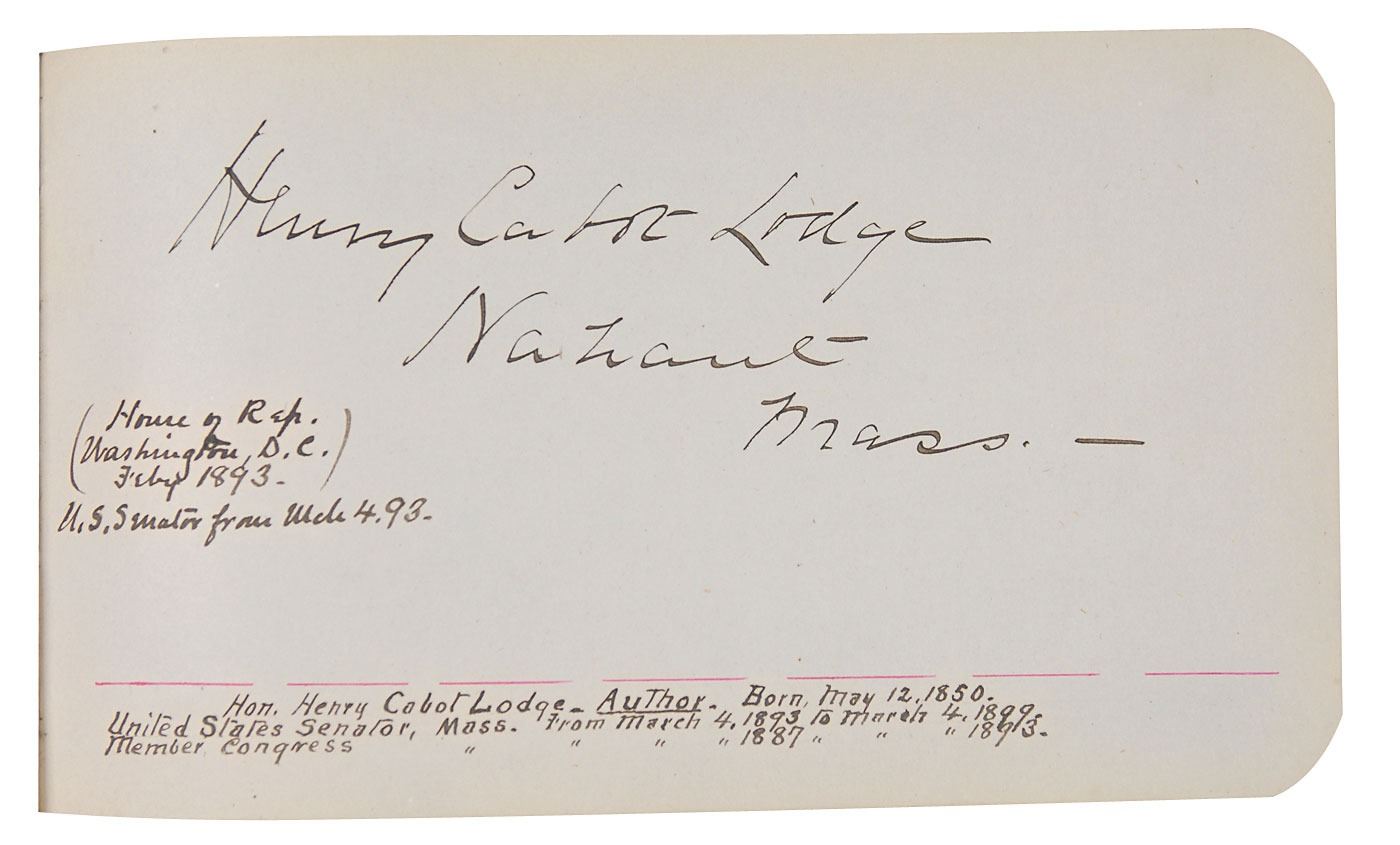 Henry Cabot Lodge
Nahant
Mass. —
(House of Rep.
Washington, D.C.)
Feby 1893.
U.S. Senator from Mch 4. 93.
Hon. Henry Cabot Lodge. Author. Born, May 12, 1850.
United States Senator, Mass. From March 4, 1893 to March 4, 1899.
Member Congress " " " " 1887 " " " 1893.